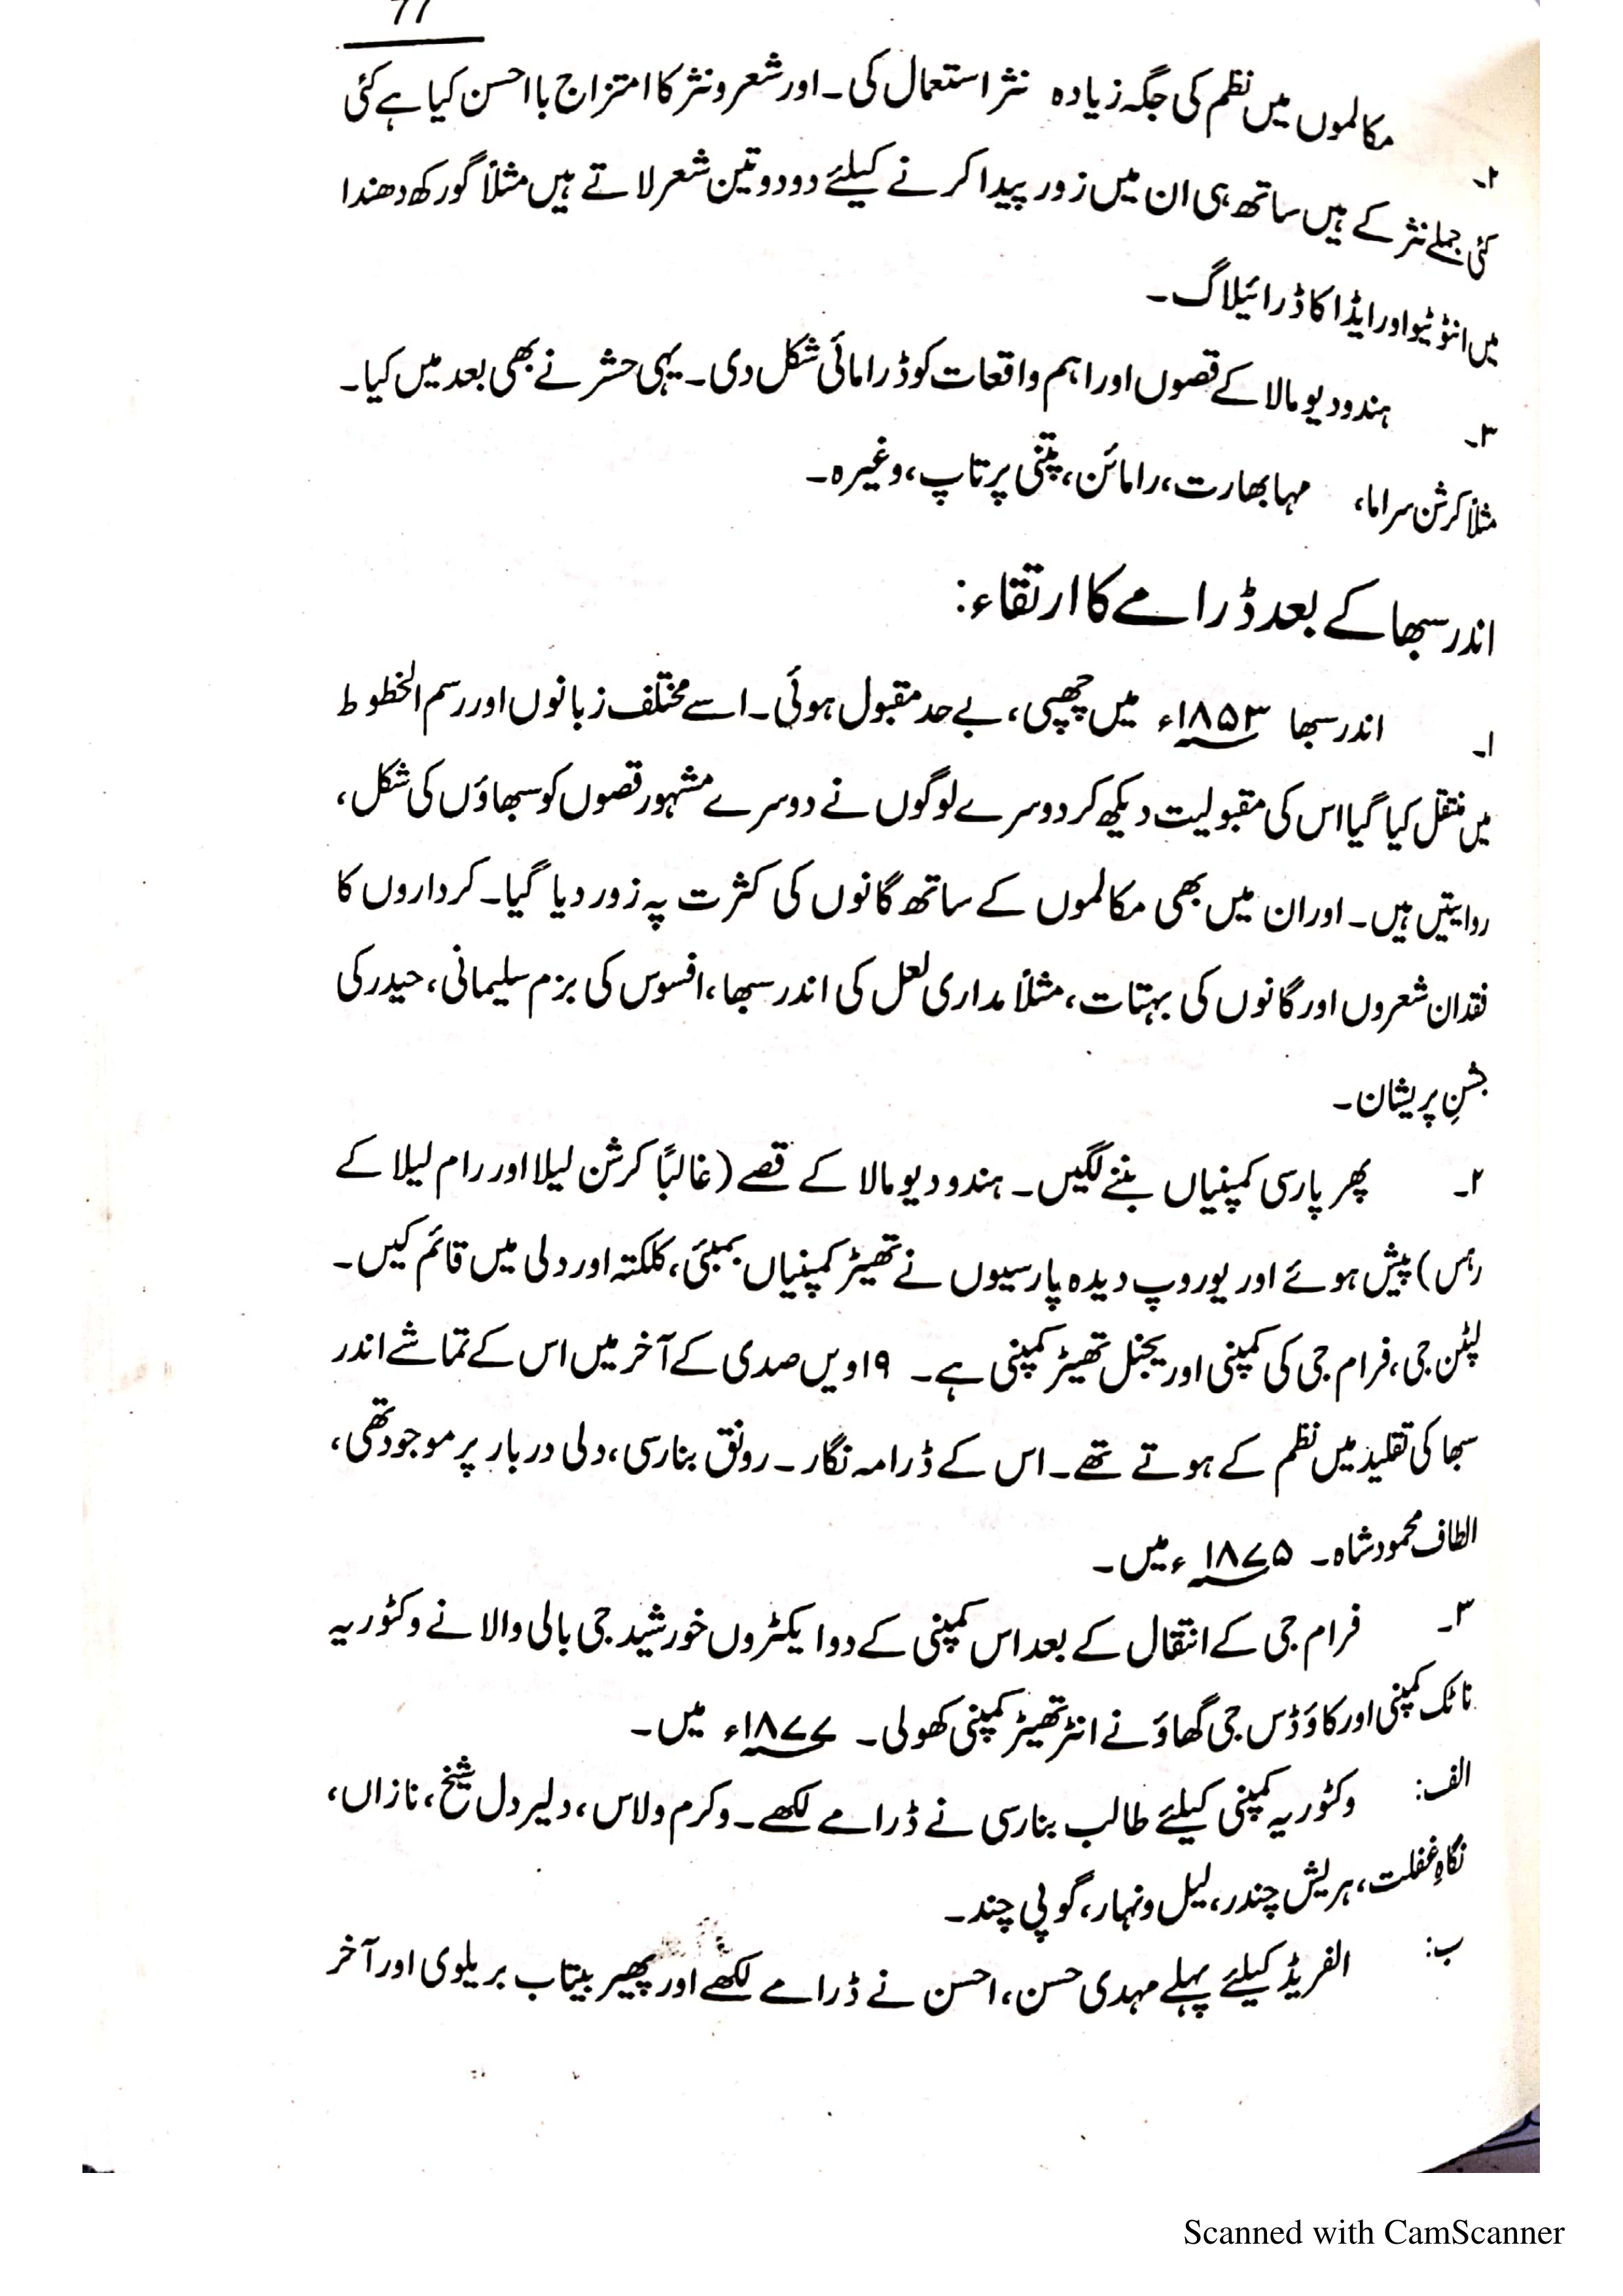 77
۲۔ مکالموں میں نظم کی جگہ زیادہ نثر استعمال کی۔ اور شعر و نثر کا امتزاج با احسن کیا ہے کئی
کئی جملے نثر کے ہیں ساتھ ہی ان میں زور پیدا کرنے کیلئے دو دو تین شعر لاتے ہیں مثلاً گورکھ دھندا
میں انٹوٹیو اور ایڈا کا ڈرائیلاگ۔
۳۔ ہندو دیو مالا کے قصوں اور اہم واقعات کو ڈرامائی شکل دی۔ یہی حشر نے بھی بعد میں کیا۔
مثلاً کرشن سراما، مہا بھارت، رامائن، پتنی پرتاپ، وغیرہ۔
اندر سبھا کے بعد ڈرامے کا ارتقاء:
۱۔ اندر سبھا ۱۸۵۳ء میں چھپی، بے حد مقبول ہوئی۔ اسے مختلف زبانوں اور رسم الخطوط
میں منتقل کیا گیا اس کی مقبولیت دیکھ کر دوسرے لوگوں نے دوسرے مشہور قصوں کو سبھاؤں کی شکل،
روایتیں ہیں۔ اور ان میں بھی مکالموں کے ساتھ گانوں کی کثرت پہ زور دیا گیا۔ کرداروں کا
فقدان شعروں اور گانوں کی بہتات، مثلاً مداری لعل کی اندر سبھا، افسوس کی بزم سلیمانی، حیدر کی
جشنِ پریشان۔
۲۔ پھر پارسی کمپنیاں بننے لگیں۔ ہندو دیو مالا کے قصے (غالباً کرشن لیلا اور رام لیلا کے
رہس) پیش ہوئے اور یوروپ دیدہ پارسیوں نے تھیٹر کمپنیاں بمبئی، کلکتہ اور دلی میں قائم کیں۔
پٹن جی، فرام جی کی کمپنی اوریجنل تھیٹر کمپنی ہے۔ ۱۹ویں صدی کے آخر میں اس کے تماشے اندر
سبھا کی تقلید میں نظم کے ہوتے تھے۔ اس کے ڈرامہ نگار۔ رونق بنارسی، دلی دربار پر موجود تھی،
الطاف محمود شاہ۔ ۱۸۷۵ء میں۔
۳۔ فرام جی کے انتقال کے بعد اس کمپنی کے دو ایکٹروں خورشید جی بالی والا نے وکٹوریہ
ناٹک کمپنی اور کاؤڈس جی گھاؤ نے انٹر تھیٹر کمپنی کھولی۔ ۱۸۷۷ء میں۔
الف: وکٹوریہ کمپنی کیلئے طالب بنارسی نے ڈرامے لکھے۔ وکرم ولاس، دلیر دل شیخ، نازاں،
نگاہِ غفلت، ہریش چندر، لیل و نہار، گوپی چند۔
ب: الفریڈ کیلئے پہلے مہدی حسن، احسن نے ڈرامے لکھے اور پھیر بیتاب بریلوی اور آخر
Scanned with CamScanner